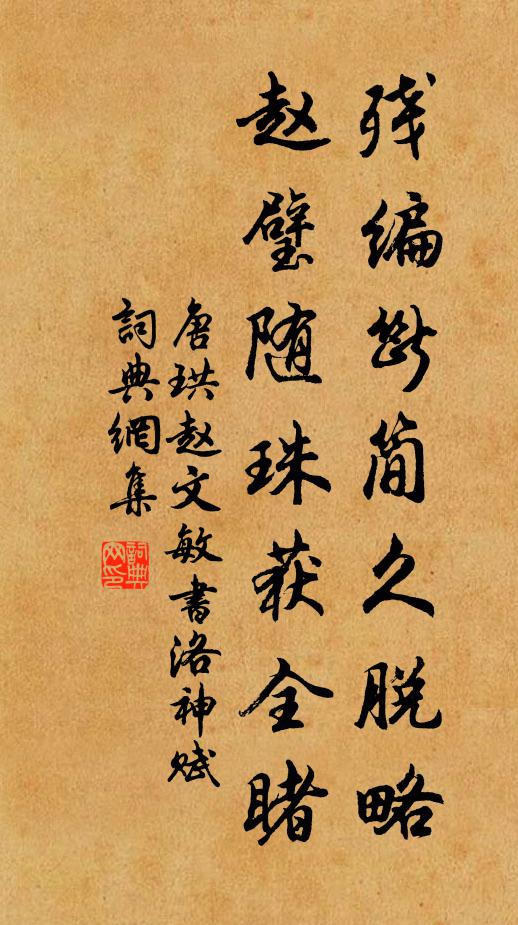 残编断简久脱略
赵璧随珠获全睹
唐珙赵文敏书洛神赋
詞典網集
詞典网印